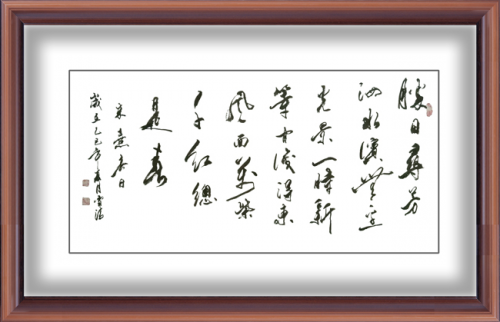 勝日尋芳
泗水濱無邊
光景一時新
等閒識得東
風面萬紫
千紅總
是春
朱熹春日
歲在乙巳年春月